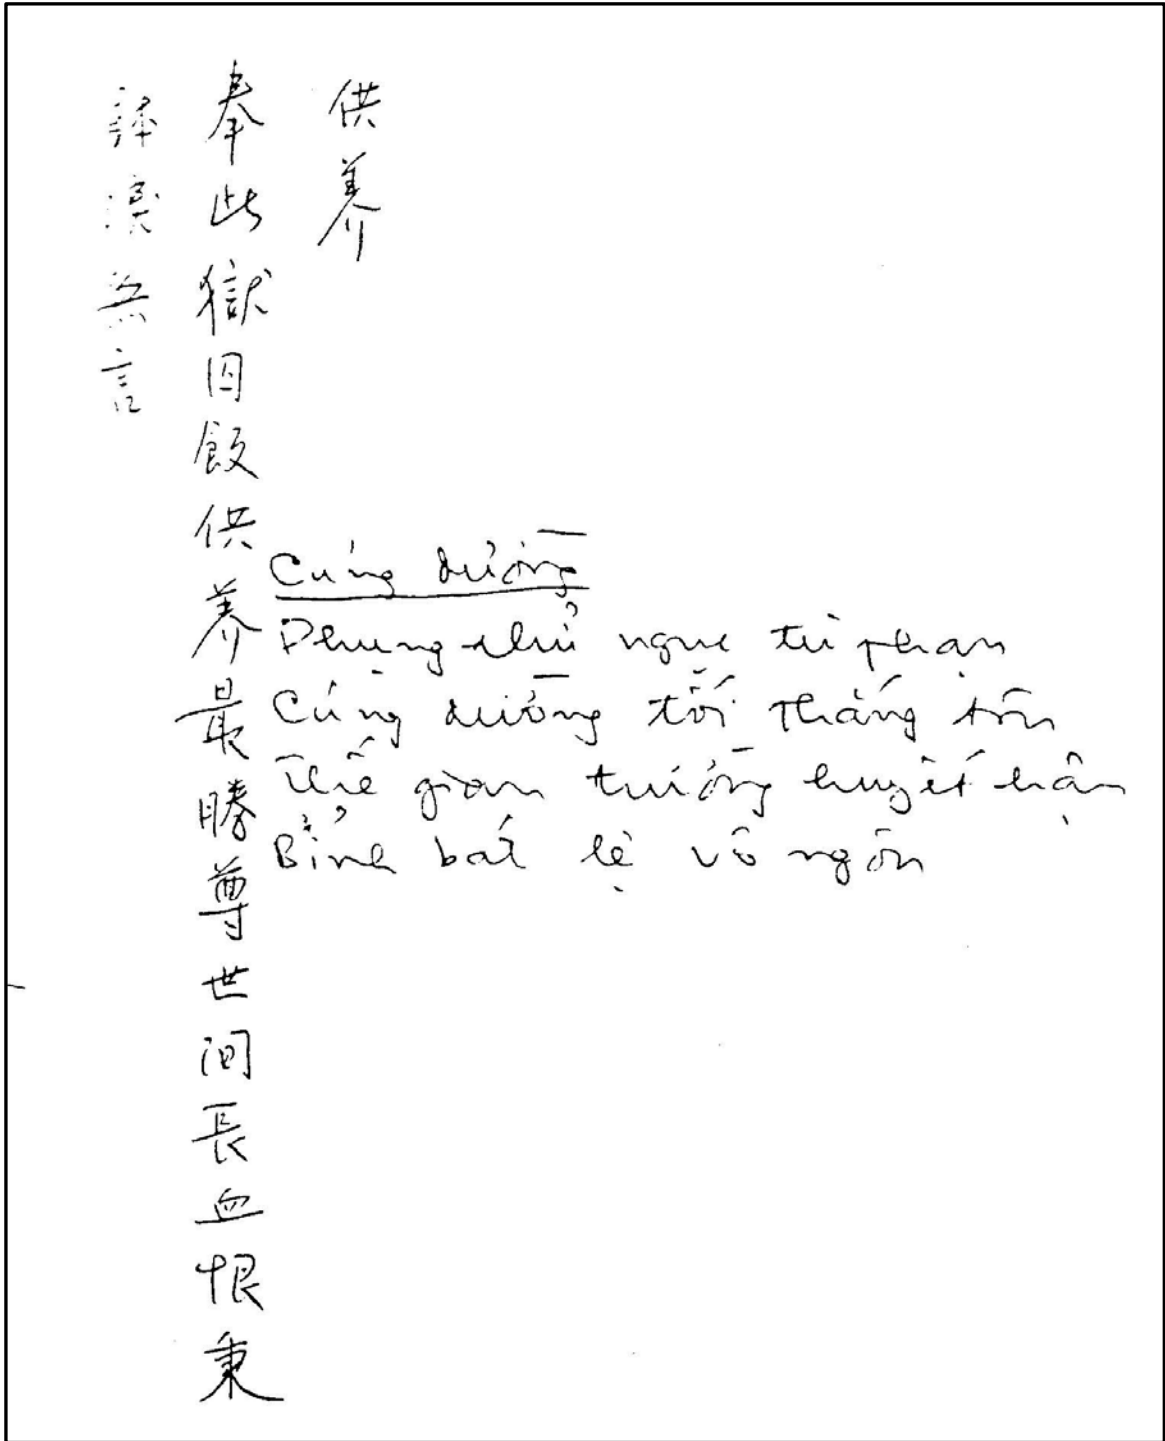 供养
奉此獄囚飯供养最勝尊世间長血恨秉
鉢淚無言
Cúng dường
Phụng thử ngục tù phạn
Cúng dường tối thắng tôn
Thế gian trường huyết hận
Bỉnh bát lệ vô ngôn